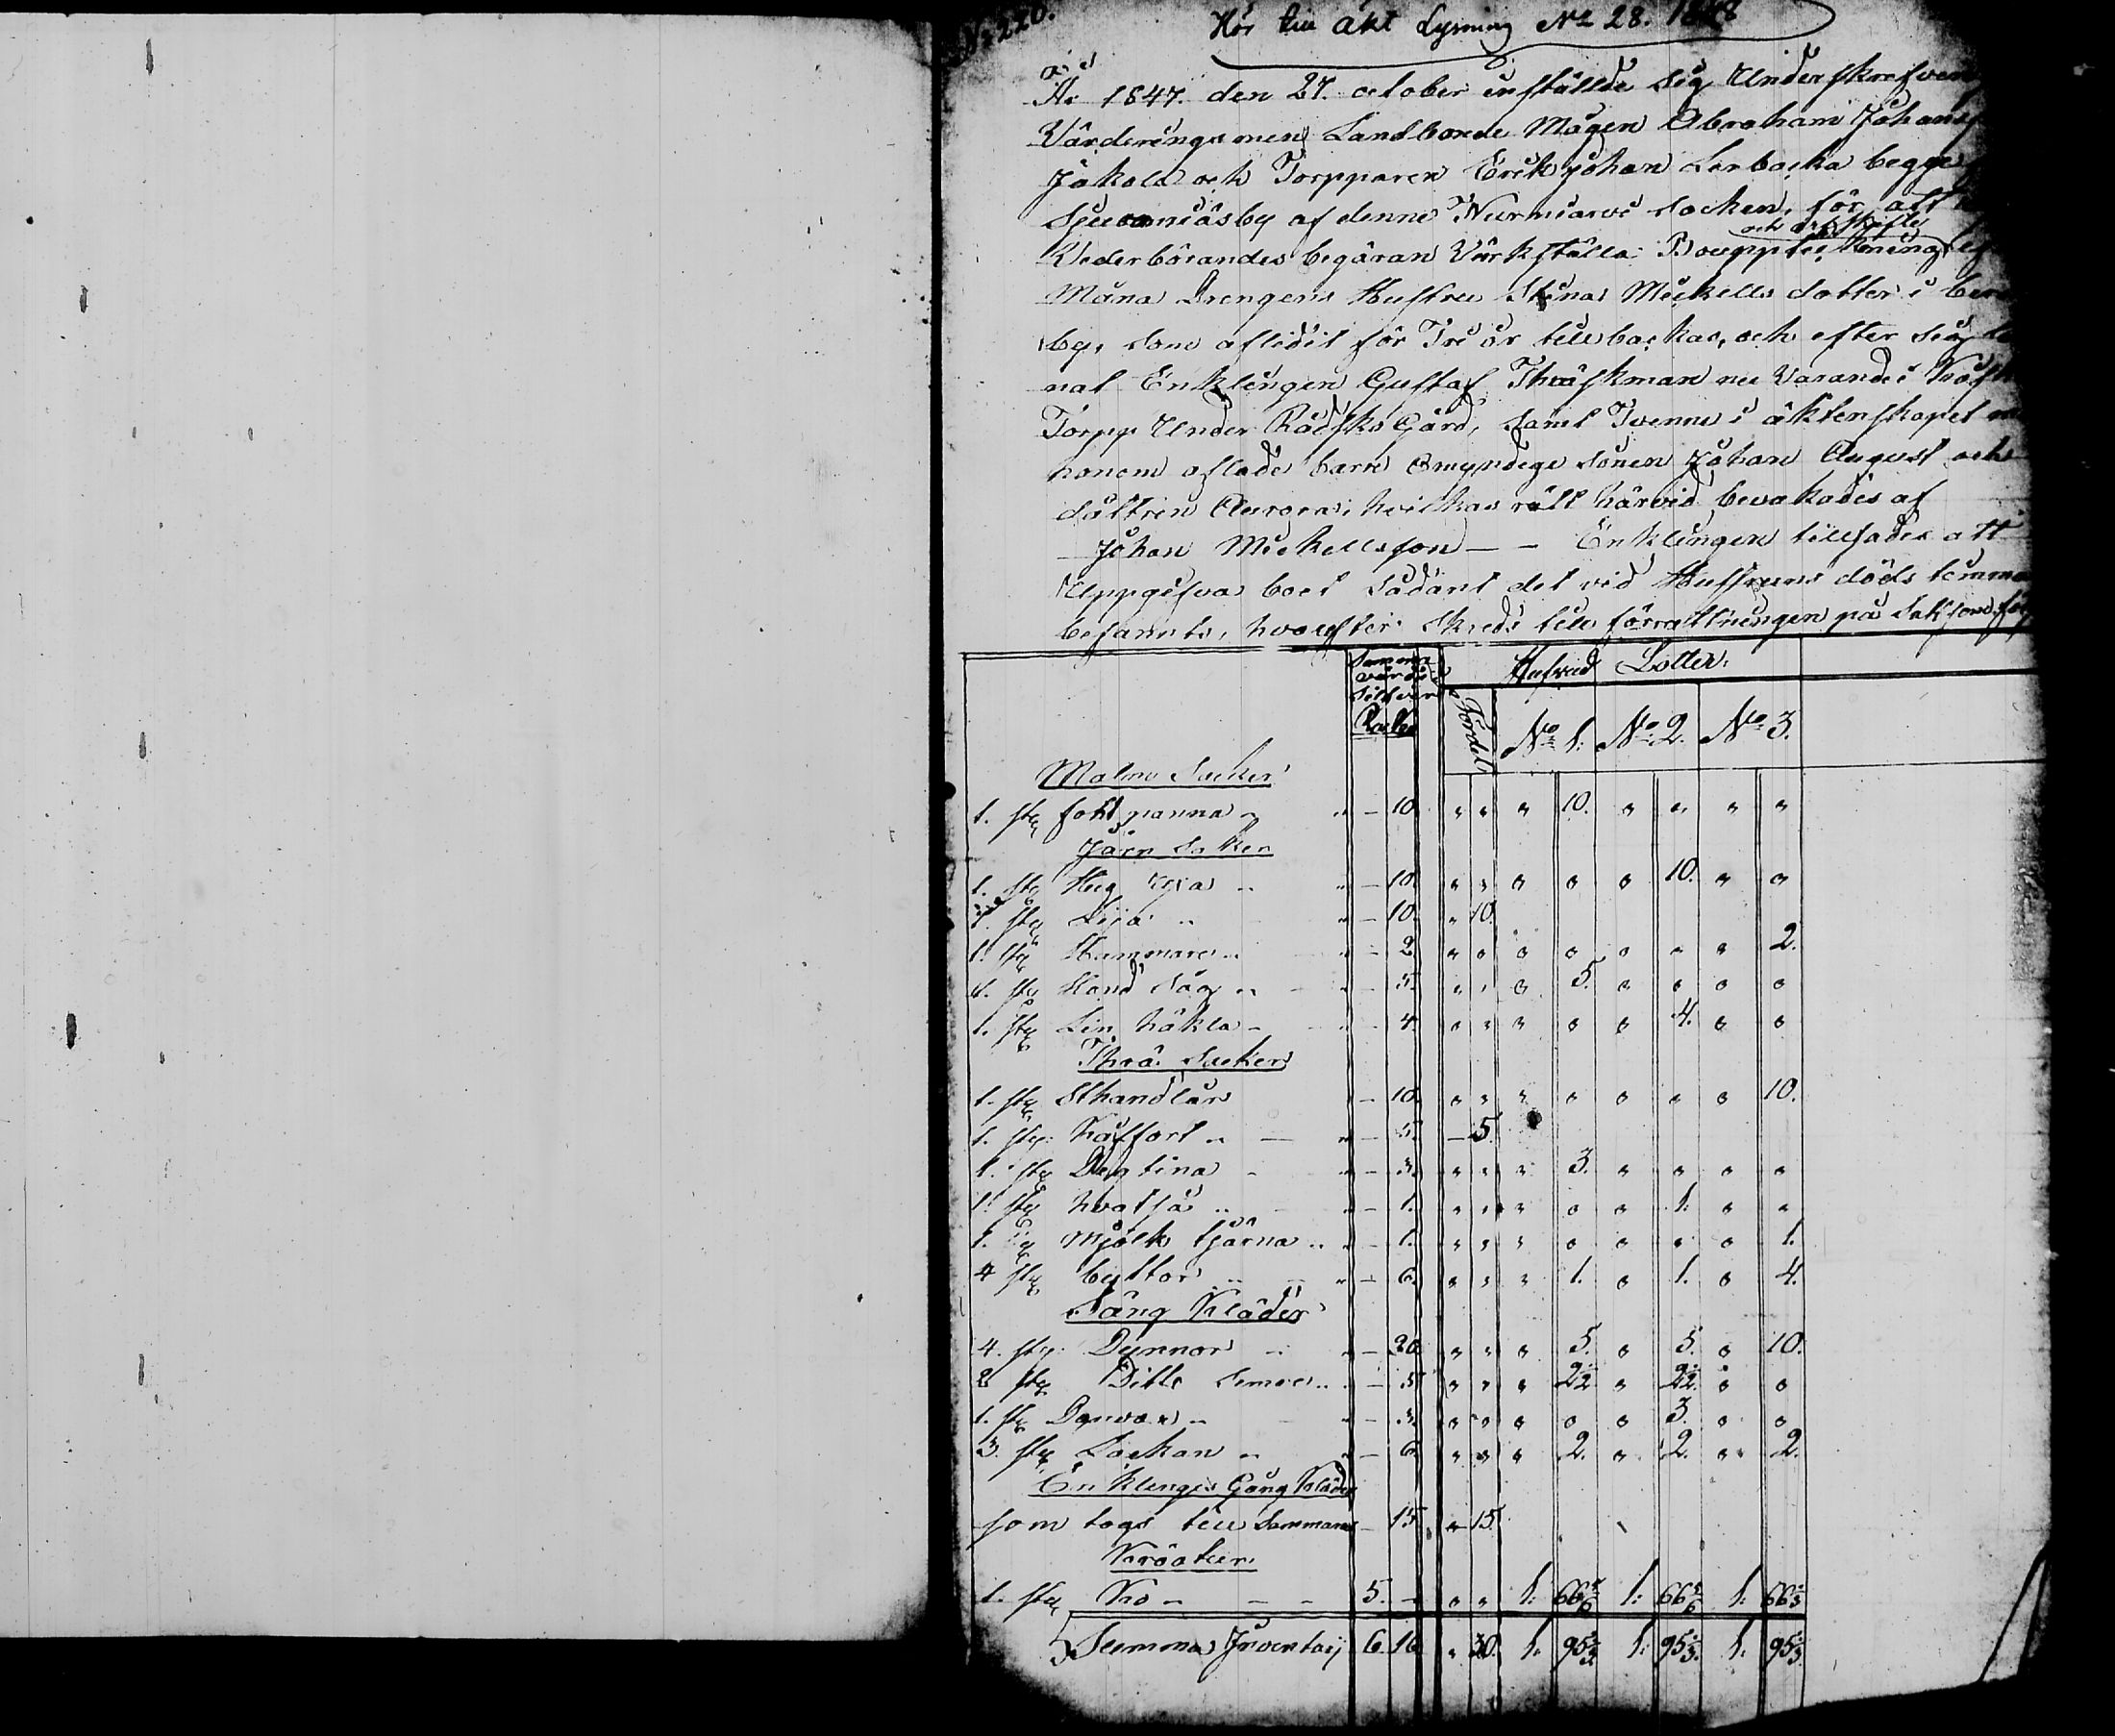 No 220.
Hör till äkt Lysning No 28. 1848
År 1847. den 27. october inställde sig Underskrefven
Värderingsmen Landbonde Mågen Abraham Johans
Jakola och Torpparen Erick Johan Lerbacka begge
af denne Nurmiarvi Socken, för att
och arfskifte
Vederbörandes begäran Värkställa Bouppteckning ef
Måna Drengens Hustru Stina Mickells dotter i be
by, som aflidit för Tre år tillbackas, och efter sig le
nat Enklingen Gustaf Thräskman nu Varande i
Torpp Under Rådsko Gård, samt Tvenne i äktenskapet m
honom aflade barn Omyndige sonen Johan August och
dottren Aurora; hvilkas rätt härvid bevakades af
Johan Mickellsson — — Enklingen tillsades att
Uppgifva boet sådant det vid Hustruns döds temma
befannts, hvarefter skreds till förrättningen på sätt som föl
Summa värde Silfver
Hufvud Lotter.
Rub
Fördel
No 1: No 2. No 3.
Malm Saeker
1. sty fot panna " – 10. " " " 10. " " " "
Järn Saker
1. sty Hug yxa " – 10. " " " " " 10. " "
1. sty Lija " – 10. " 10.
1. sty Hammare " – 2. " " " " " " " 2.
1. sty Hand såg " – 5. " " " 5. " " " "
1. sty Lin häkla – 4. " " " " " 4. " "
Thrä Saeker
1. sty – 10. " " " " " " " 10.
1. sty Käffort " – 5. – 5.
1. sty Degtina " – 3. " " " 3. " " " "
1. sty " – 1. " " " " " 1. " "
1. sty Mjölk tjärna " – 1. " " " " " " " 1.
4 sty byttor " – 6. " " " 1. " 1. " 4.
Säng Kläder
4. sty Dynnor " – 20. " " " 5. " 5. " 10.
2 sty Ditto " – 5 " " " 2½ " 2½ " "
1. sty " – 3. " " " " " 3. " "
3. sty Lackan " – 6. " " " 2. " 2. " 2.
Enklings Gång Kläder
som togs till Sammans – 15 " 15.
Kreatur
1. sty Ko – – – 5. – " " 1: 66 4/6 1: 66 4/6 1: 66 2/3
Summa Inventarij 6. 16 " 30. 1: 95 1/3 1: 95 1/3. 1: 95 1/3.